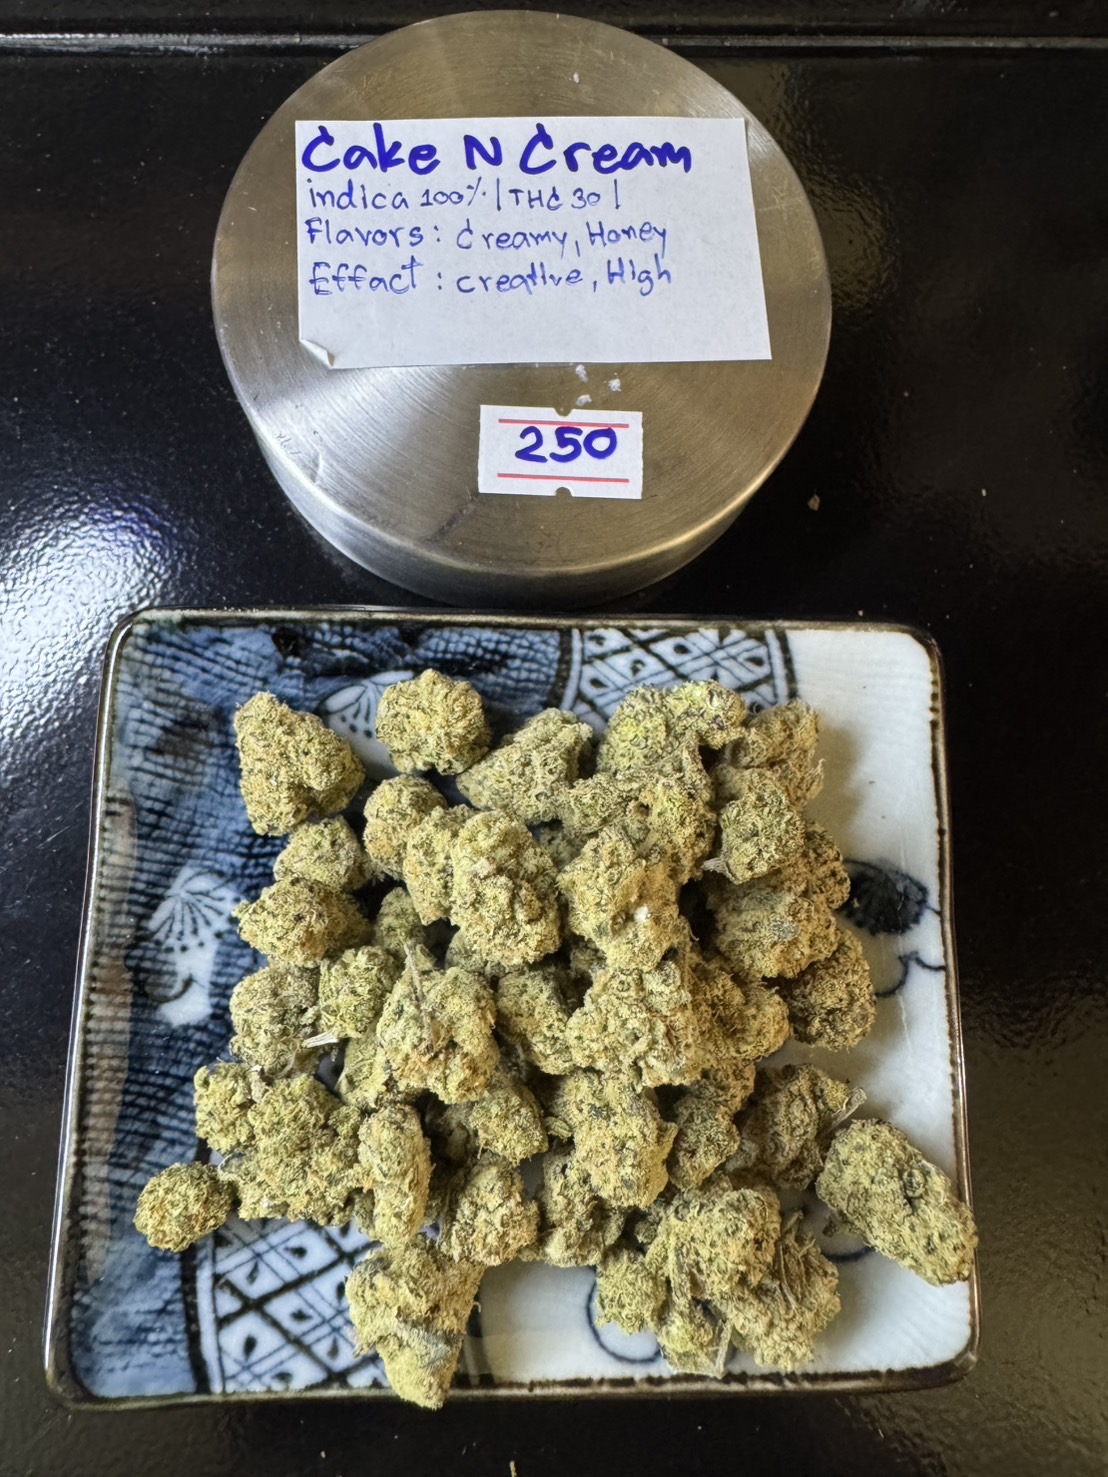 Cake N Cream
indica 100% | THC 30 |
Flavors: Creamy, Honey
Effact: creative, High
250